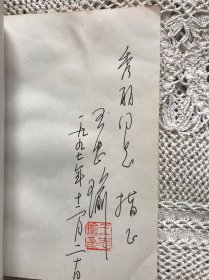 秀丽同志 指正
王瑜
一九九七年十二月二十日